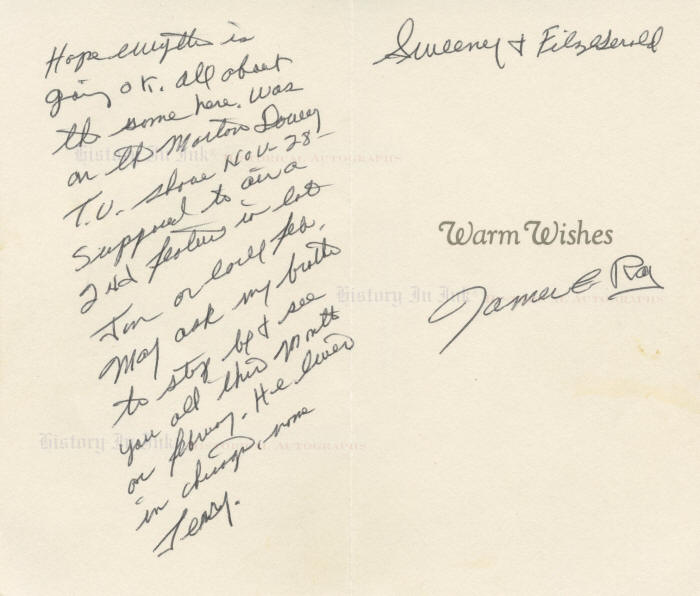 Hope everything is
going OK. all about
the same here. was
on the Morton Downey
T.V. show Nov-28-
Supposed to air a
2nd feature in late
Jan or early feb.
May ask my brother
to stop by & see
you all this month
or february. He lives
in chicago, name
Jerry.
Sweeney & Fitzgerald
Warm Wishes
James E Ray
History In Ink® Historical Autographs
History In Ink® Historical Autographs
History In Ink® Historical Autographs